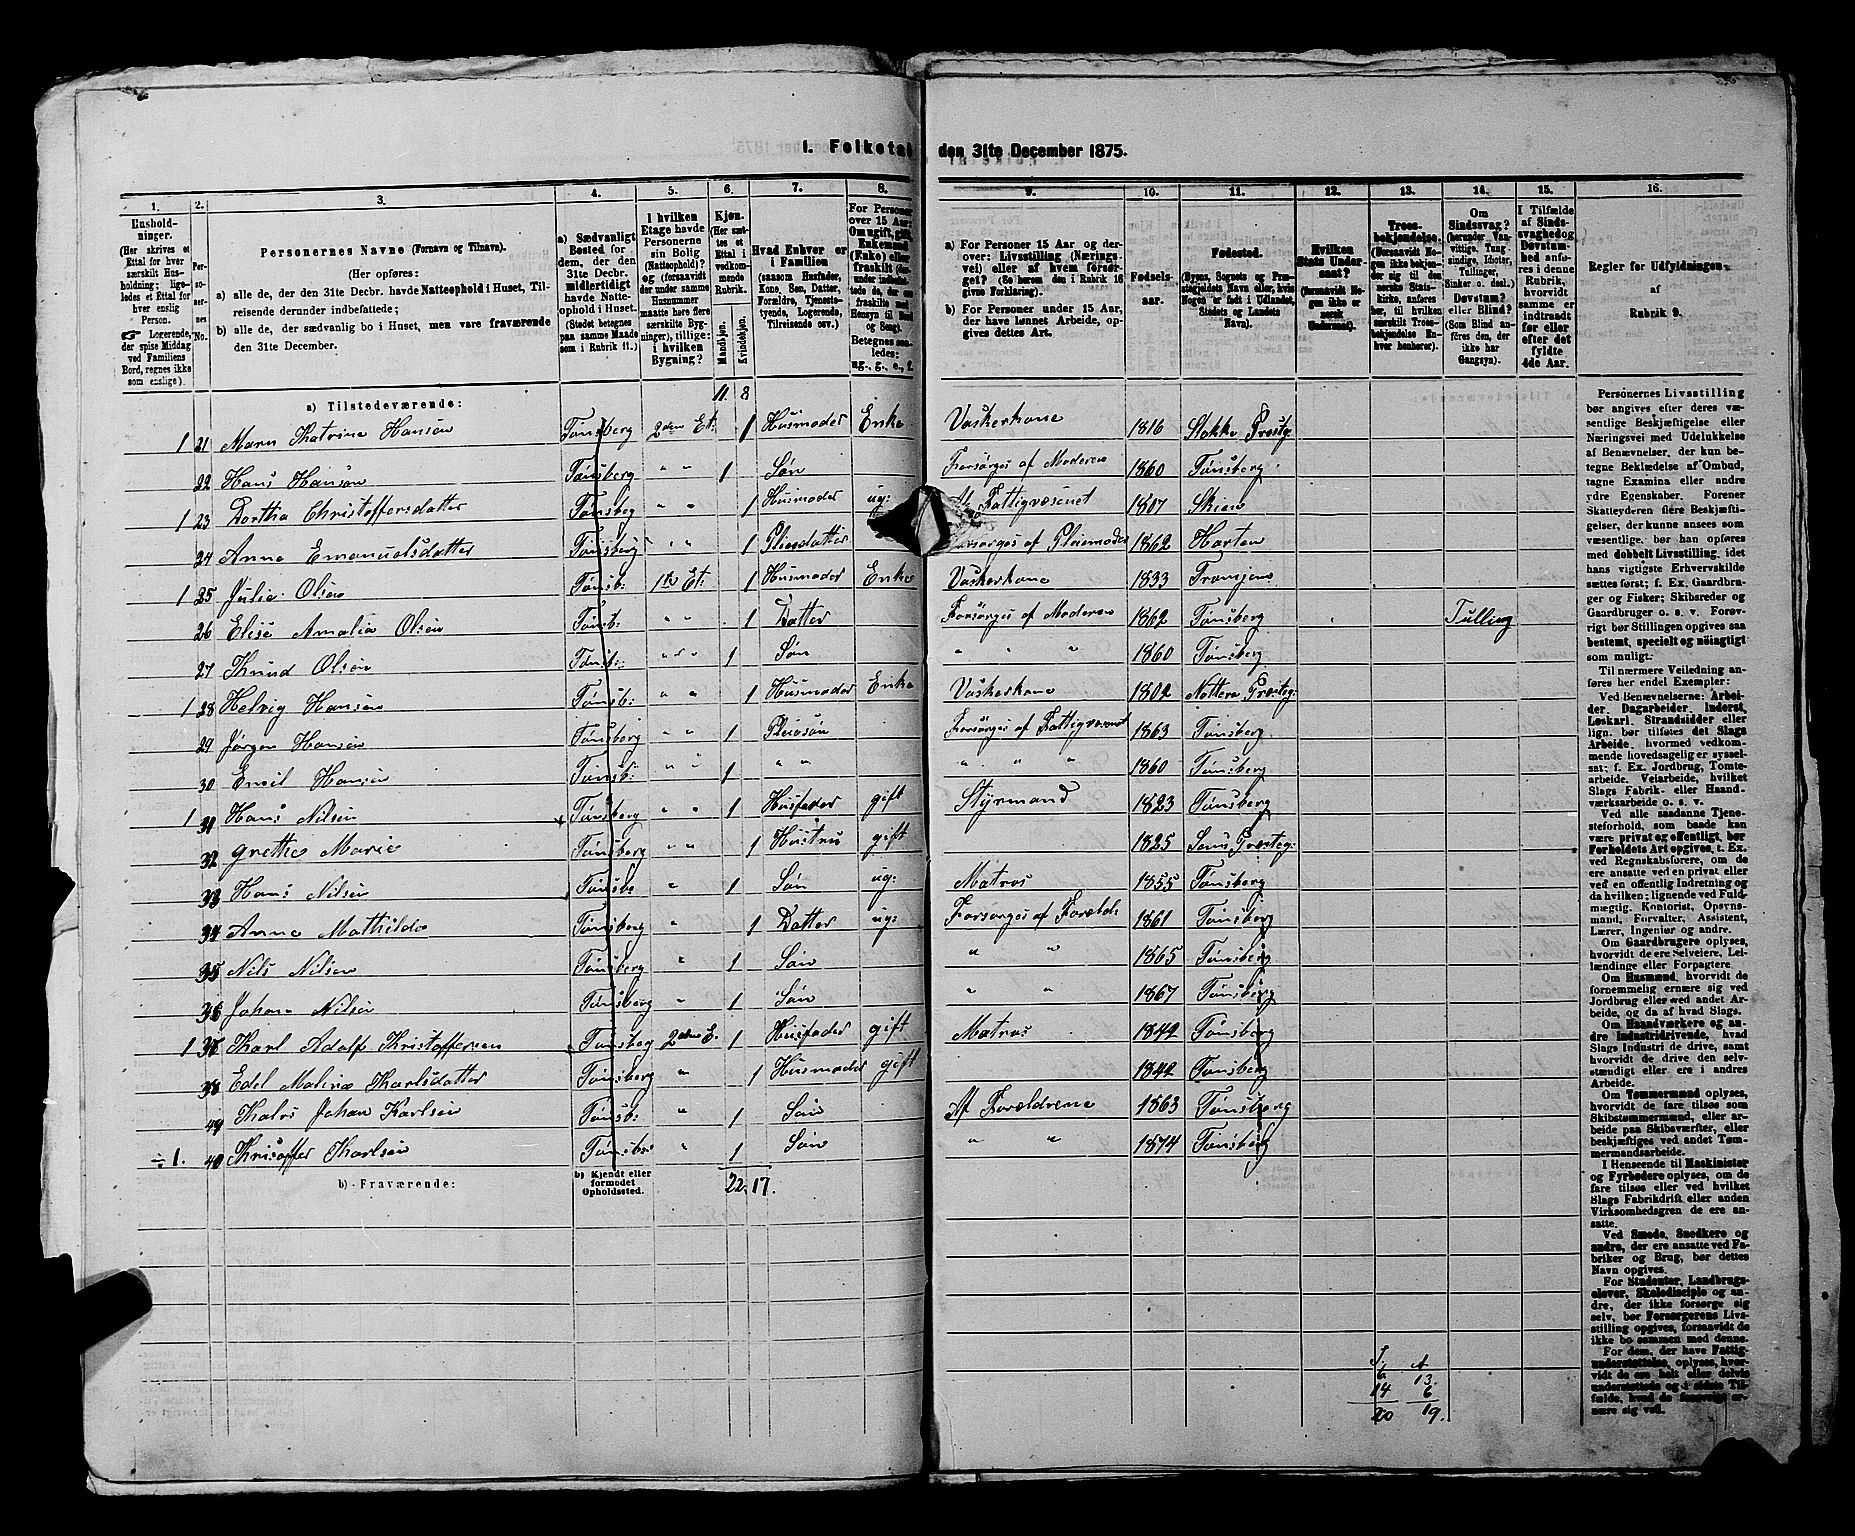 I. Folketal den 31te December 1875.
1. 2. 3. 4. 5. 6. 7. 8. 9. 10. 11. 12. 13. 14. 15. 16.
Husholdninger. (Her skrives et Ettal for hver særskilt Husholdning; ligeledes et Ettal for hver enslig Person. Logerende, der spise Middag ved Familiens Bord, regnes ikke som enslige).
Personernes No.
Personernes Navne (Fornavn og Tilnavn).
(Her opføres:
a) alle de, der den 31te Decbr. havde Natteophold i Huset, Tilreisende derunder indbefattede;
b) alle de, der sædvanlig bo i Huset, men vare fraværende den 31te December.
a) Sædvanligt Bosted for dem, der den 31te Decbr. midlertidigt havde Natteophold i Huset. (Stedet betegnes paa samme Maade som i Rubrik 11.)
I hvilken Etage havde Personerne sin Bolig (Natteophold)? og (forsaavidt der under samme Husnummer maatte høre flere særskilte Bygninger), tillige: i hvilken Bygning?
Kjøn. (Her sættes et Ettal i vedkommende Rubrik. Mandkjøn. Kvindekjøn.
Hvad Enhver er i Familien (saasom Husfader, Kone, Søn, Datter, Forældre, Tjenestetyende, Logerende, Tilreisende osv.)
For Personer over 15 Aar: Om ugift, gift, Enkemand (Enke) eller fraskilt
Betegnes saaledes: ug., g., e., f.
a) For Personer 15 Aar og derover: Livsstilling (Næringsvei) eller af hvem forsørget? (Se herom den i Rubrik 16 givne Forklaring).
b) For Personer under 15 Aar, der have lønnet Arbeide, opgives dettes Art.
Fødselsaar.
Fødested. (Byens, Sognets og Præstegjeldets Navn eller, hvis Nogen er født i Udlandet, Stedets og Landets Navn).
Hvilken Stats Undersaat? (forsaavidt Nogen ikke er norsk Undersaat).
Troesbekjendelse. (forsaavidt Nogen ikke bekjender sig til den norske Statskirke, anføres her, til hvilken særskilt Troesbekjendelse Enhver henhører).
Om Sindssvag? (herunder Vanvittige, Tungsindige, Idioter, Tullinger, Sinker o. desl.) Døvstum? eller Blind? (Som Blind anføres den, der ikke har Gangsyn).
I Tilfælde af Sindssvaghed og Døvstumhed anføres i denne Rubrik, hvorvidt samme er indtraadt før eller efter det fyldte 4de Aar.
Regler for Udfyldningen af Rubrik 9.
a) Tilstedeværende: 11. 8
1 21 Maren Katrine Hansen Tønsberg 2den Et: 1 Husmoder Enke Vaskerkone 1816 Stokke Præstg:
22 Hans Hansen Tønsberg " " 1 Søn Forsørges af Moderen 1860 Tønsberg
1 23 Dorthea Christoffersdatter Tønsberg " " 1 Husmoder ug: Af Fattigvæsenet 1807 Skien
24 Anne Emanuelsdatter Tønsberg " " 1 Pleiedatter Forsørges af Pleiemoder 1862 Horten
1 25 Julie Olsen Tønsb: 1ste Et: 1 Husmoder Enke Vaskerkone 1833 Tromsøen
26 Elise Amalia Olsen Tønsb: " " 1 Datter Forsørges af Moderen 1862 Tønsberg Tulling
27 Knud Olsen Tønsb: " " 1 Søn " " " 1860 Tønsberg
1 28 Helvig Hansen Tønsb: " " 1 Husmoder Enke Vaskerkone 1802 Nøtterø Præsteg:
29 Jørgen Hansen Tønsberg " " 1 Pleiesøn Forsørges af Fattigvæsenet 1863 Tønsberg
30 Emil Hansen Tønsb: " " 1 " " " " " 1860 Tønsberg
1 31 Hans Nilsen Tønsberg " " 1 Husfader gift Styrmand 1823 Tønsberg
32 Grethe Marie Tønsberg " " 1 Hustru gift 1825 Sems Præsteg:
33 Hans Nilsen Tønsbe " 1 Søn ug: Matros 1855 Tønsberg
34 Anne Mathilde Tønsberg " 1 Datter ug: Forsørges af Foræld: 1861 Tønsberg
35 Nils Nilsen Tønsberg " 1 Søn " " 1865 Tønsberg
36 Johan Nilsen Tønsberg " 1 Søn " " 1867 Tønsberg
1 37 Karl Adolf Kristoffersen Tønsberg 2den E. 1 Husfader gift Matros 1842 Tønsberg
38 Edel Maline Karlsdatter Tønsberg " 1 Husmoder gift 1842 Tønsberg
49 Johan Karlsen Tønsb: " 1 Søn Af Forældrene 1863 Tønsberg
÷1. 40 Kristoffer Karlsen Tønsbe " 1 Søn " " 1874 Tønsberg
b) Fraværende: b) Kjendt eller formodet Opholdssted. 22. 17.
13.
14 6
20 19.
Personernes Livsstilling bør angives efter deres væsentlige Beskjæftigelse eller Næringsvei med Udelukkelse af Benævnelser, der kun betegne Beklædelse af Ombud, tagne Examina eller andre ydre Egenskaber. Forener Skatteyderen flere Beskjæftigelser, der kunne ansees som væsentlige, bør han opføres med dobbelt Livsstilling, idet hans vigtigste Erhvervskilde sættes først; f. Ex. Gaardbruger og Fisker; Skibsreder og Gaardbruger o. s. v. Forøvrigt bør Stillingen opgives saa bestemt, specielt og nøiagtigt som muligt.
Til nærmere Veiledning anføres her endel Exempler:
Ved Benævnelserne: Arbeider, Dagarbeider, Inderst, Løskarl, Strandsidder eller lign. bør tilføies det Slags Arbeide, hvormed vedkommende hovedsagelig er sysselsat; f. Ex. Jordbrug, Tomtearbeide, Veiarbeide, hvilket Slags Fabrik- eller Haandværksarbeide o. s. v.
Ved alle saadanne Tjenesteforhold, som baade kan være privat og offentligt, bør Forholdets Art opgives, t. Ex. ved Regnskabsførere, om de ere ansatte ved en privat eller ved en offentlig Indretning og da hvilken; lignende ved Fuldmægtig, Kontorist, Opsynsmand, Forvalter, Assistent, Lærer, Ingeniør og andre.
Om Gaardbrugere oplyses, hvorvidt de ere Selveiere, Leilændinge eller Forpagtere.
Om Husmænd, hvorvidt de fornemmelig ernære sig ved Jordbrug eller ved andet Arbeide, og da af hvad Slags.
Om Haandværkere og andre Industridrivende, hvad Slags Industri de drive, samt hvorvidt de drive den selvstændigt eller ere i andres Arbeide.
Om Tømmermænd oplyses, hvorvidt de fare tilsøs som Skibstømmermænd, eller arbeide paa Skibsværfter, eller beskjæftiges ved andet Tømmermandsarbeide.
I Henseende til Maskinister og Fyrbødere oplyses, om de fare tilsøs eller ved hvilket Slags Fabrikdrift eller anden Virksomhedsgren de ere ansatte.
Ved Smede, Snedkere og andre, der ere ansatte ved Fabriker og Brug, bør dettes Navn opgives.
For Studenter, Landbrugselever, Skoledisciple og andre, der ikke forsørge sig selv, bør Forsørgerens Livsstilling opgives, forsaavidt de ikke bo sammen med denne.
For dem, der have Fattigunderstøttelse, oplyses, hvorvidt de ere helt eller delvis understøttede og i sidste Tilfælde, hvad de forøvrigt ernære sig ved.